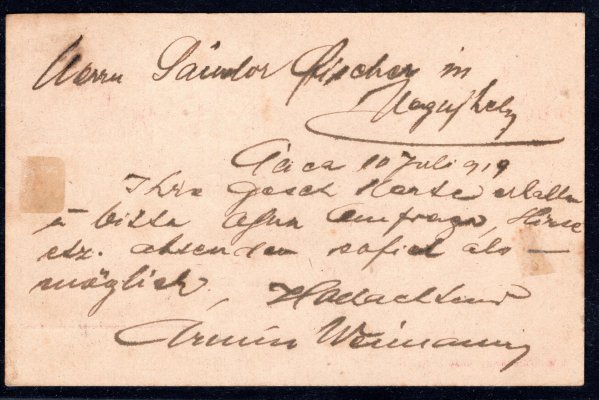 Herrn Sándor Fischer in
Nagymihály
10 Juli 919
Ihre gesch Karte erhalten
u bitte Anfrage, Hirse
etz. absenden sofiel als
möglich,
Hodachtend
Armin Weimann